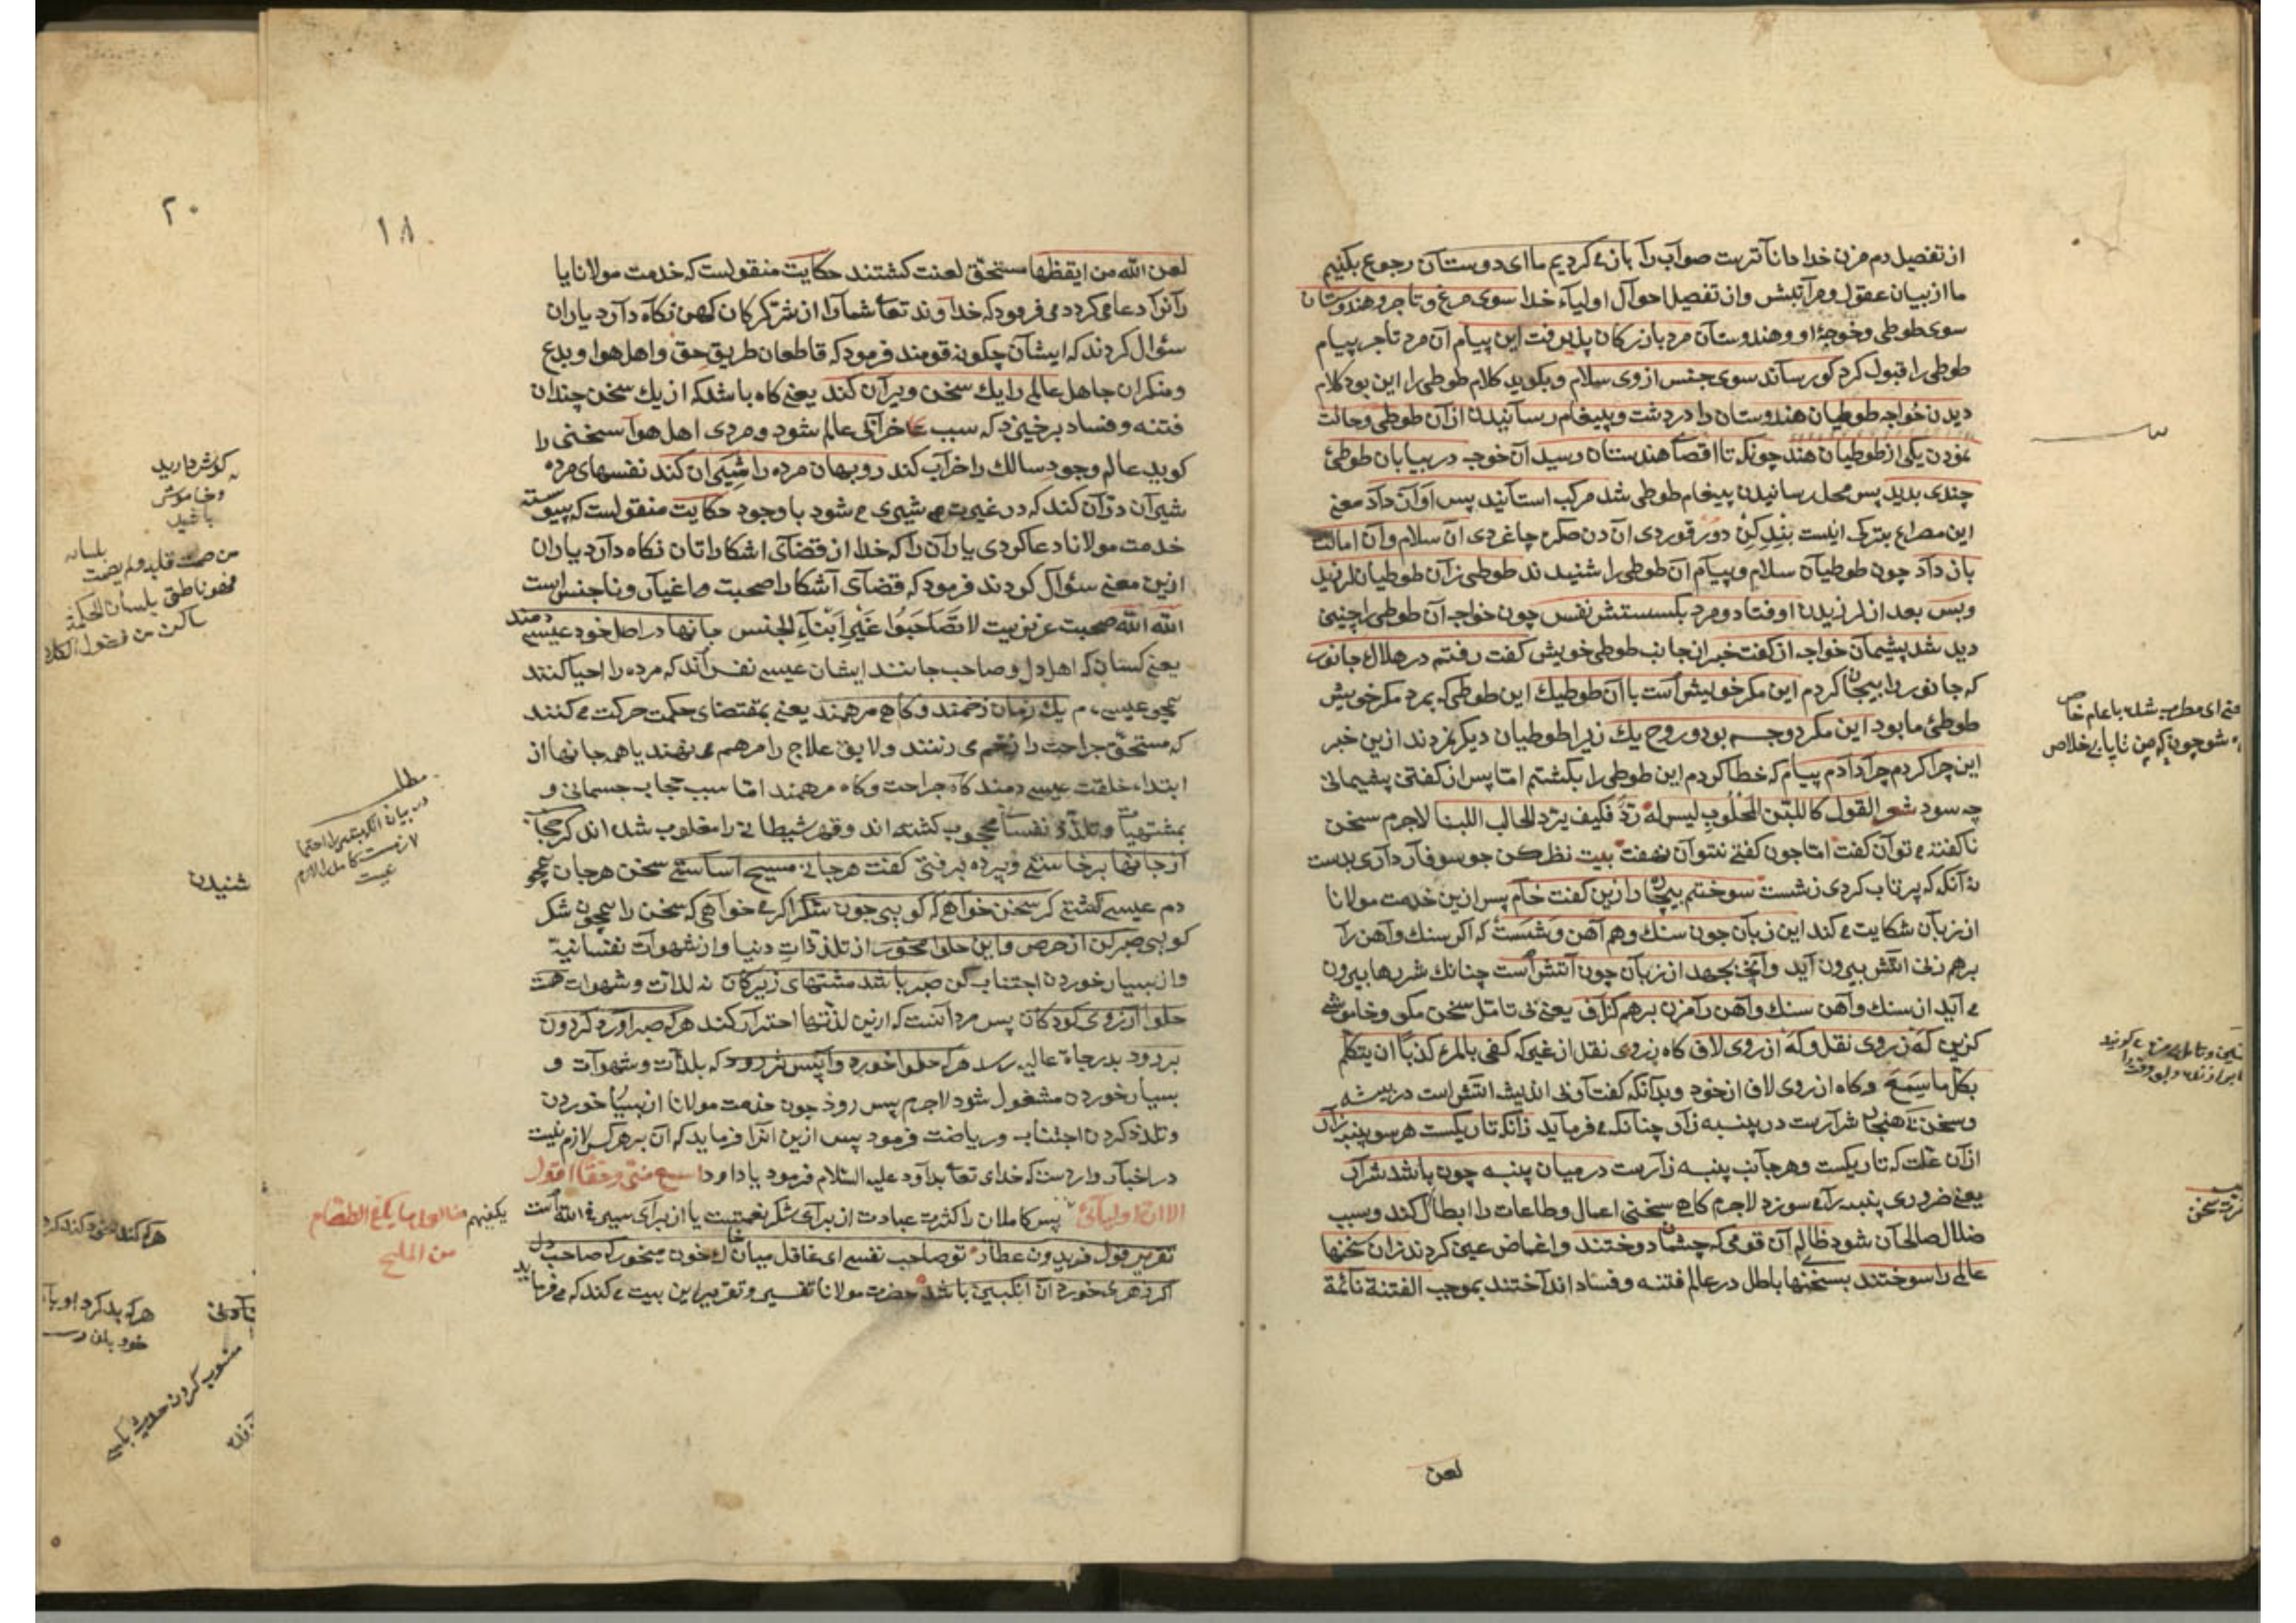 از تفصیل دم مزن خدا داناترست صواب را باز می کردیم ما ای دوستان رجوع بکنیم
ما از بیان عقول و مراتبش و از تفصیل احوال اولیاء خدا سوی مرغ و تاجر و هندوستان
سوی طوطی و خوجۀ او و هندوستان مرد بازرکان پذیرفت این پیام آن مرد تاجر پیام
طوطی را قبول کرد کو رساند سوی جنس از وی سلام و بکوید کلام طوطی را این بود کلام
دیدن خواجه طوطیان هندوستان را در دشت و پیغام رسانیدن از آن طوطی و حالت
نمودن یکی از طوطیان هند چونکه تا اقصاء هندستان رسید آن خوجه در بیابان طوطئ
چندی بدید پس محل رسانیدن پیغام طوطی شد مرکب استانید پس آواز داد معنی
این مصراع بترکی اینست
باز داد چون طوطیان سلام و پیام آن طوطی را شنیدند طوطی زان طوطیان لرزید
و بس بعد از لرزیدن اوفتاد و مرد بکسستش نفس چون خواجه آن طوطی را چنین
دید شد پشیمان خواجه از کفت خبر از جانب طوطی خویش کفت رفتم در هلاک جانور
که جانور را بیجان کردم این مکر خویش است با آن طوطیك این طوطی که بمرد مکر خویش
طوطئ ما بود این مکر دو جسم بود و روح یك زیرا طوطیان دیکر نمردند ازین خبر
این چرا کردم چرا دادم پیام که خطا کردم این طوطی را بکشتم اما پس از کفتن پشیمانی
چه سود شعر القول کاللبن المحلوب لیس له ردّ فکیف یردّ الحالب اللبنا لاجرم سخن
ناکفته می توان کفت اما چون کفتی نتوان نهفت بیت نظر کن چو سوفار داری بدست
نه آنکه که پرتاب کردی ز شست سوختم بیچاره را زین کفت خام پس ازین خدمت مولانا
از زبان شکایت می کند این زبان چون سنك و هم آهن وشست که اکر سنك و آهن را
برهم زنی آتش بیرون آید وآنچ بجهد از زبان چون آتش است چنانك شررها بیرون
می آید از سنك و آهن سنك و آهن را مزن برهم کزاف یعنی بی تامل سخن مکی و خاموشی
کزین که ز روی نقل و که از روی لاف کاه ز روی نقل از غیر که کفی بالمرء کذبا ان یتکلم
بکل ما سمع و کاه از روی لاف از خود و بدانکه کفت آونی اندیشه آتش است در بیشه
و سخن بی هنجار شرارست در پنبه زار چنانکه می فرماید زانکه تاریکست هر سو پنبه زار
از آن علت که تاریکست و هر جانب پنبه زارست در میان پنبه چون باشد شرار
یعنی ضروری پنبه را می سوزد لاجرم کاهی سخنی اعمال و طاعات را ابطال کند و سبب
ضلال صالحان شود ظالم آن قومی که چشمان دوختند و اغماض عین کردند زان سخنها
عالمی را سوختند بسخنهای باطل در عالم فتنه و فساد انداختند بموجب الفتنة نائمة
لعن
ای مطرب شده با عام خاص
شو چون که من تا یابی خلاص
۱۸
لعن الله من ایقظها مستحق لعنت کشتند حکایت منقولست که خدمت مولانا یا
رانرا دعا می کرد و می فرمود که خداوند تعا شما را از شر کرکان کهن نکاه دارد یاران
سئوال کردند که ایشان چکونه قومند فرمود که قاطعان طریق حق و اهل هوا و بدع
و منکران جاهل عالمی را یك سخن ویران کند یعنی کاه باشد که از یك سخن چندان
فتنه و فساد برخیزد که سبب خرابی عالم شود و مردی اهل هوا سخنی را
کوید عالم وجود سالك را خراب کند روبهان مرده را شیران کند نفسهای مرده
شیران دران کند که در غیرت می شیری می شود با وجود حکایت منقولست که پیوسته
خدمت مولانا دعا کردی یاران را که خدا از قضای آشکاراتان نکاه دارد یاران
ازین معنی سئوال کردند فرمود که قضای آشکارا صحبت صاغیان و ناجنس است
الله الله صحبت عزیزست لا تصاحبوا غیر ابناء الجنس جانها در اصل خود عیسی دمند
یعنی کسان که اهل دل و صاحب جانند ایشان عیسی نفس اند که مرده را احیا کنند
همچو عیسی دم یك زمان زخمند و کاهی مرهمند یعنی بمقتضای حکمت حرکت می کنند
که مستحق جراحت را زخم می زنند و لایق علاج را مرهم می نهند یا همه جانها از
ابتداء خلقت عیسی دمند کاه جراحت و کاه مرهمند اما سبب حجاب جسمانی و
بمشتهیات و تلذذ نفسا محجوب کشته اند و قوۀ شیطانی را مغلوب شده اند کر حجاب
از جانها برخاستی و پرده برفتی کفت هر جانی مسیح آساستی سخن هر جان همچو
دم عیسی کشتی کر سخن خواهی که کویی چون شکر اکر می خواهی که سخن را همچون شکر
کویی صبر کن از حرص و این حلوا مخور از تلذذات دنیا و از شهوات نفسانیة
و از بسیار خوردن اجتناب کن صبر باشد مشتهای زیرکان نه لذات و شهوات هست
حلوا آرزوی کودکان پس مرد آنست که ازین لذتها احتراز کند هر که صبر آورد کردون
بر رود بدرجات عالیه رسد هر که حلوا خورد واپس تر رود که بلذات و شهوات و
بسیار خوردن مشغول شود لاجرم پس رود چون خدمت مولانا از بسیار خوردن
و تلذذ کردن اجتناب و ریاضت فرمود پس ازین انرا فرماید که آن بر هر کس لازم نیست
در اخبار واردست که خدای تعا بداود علیه السلام فرمود یا داود اسمع منی و حقا اقول
الا ان اولیائی یکفیهم من العمل ما یکفی الطعام من الملح
پس کاملان را کثرت عبادت از برای شکر نعمتست یا از برای سیر فی الله است
تقریر قول فریدون عطار تو صاحب نفسی ای غافل میان خاك خون میخور که صاحب دل
اکر زهری خورد آن انکبین باشد حضرت مولانا تفسیر و تقریر این بیت می کند که می فرماید
مطلب
۲۰
کوش دارید
و خاموش
باشید
من صمت قلبه ولم یصمت لسانه
فهو ناطق بلسان الحکمة
ساکن من فضول الکلام
شنیدن
هر که بد کرد او
منسوب کردن حدیث بکسی